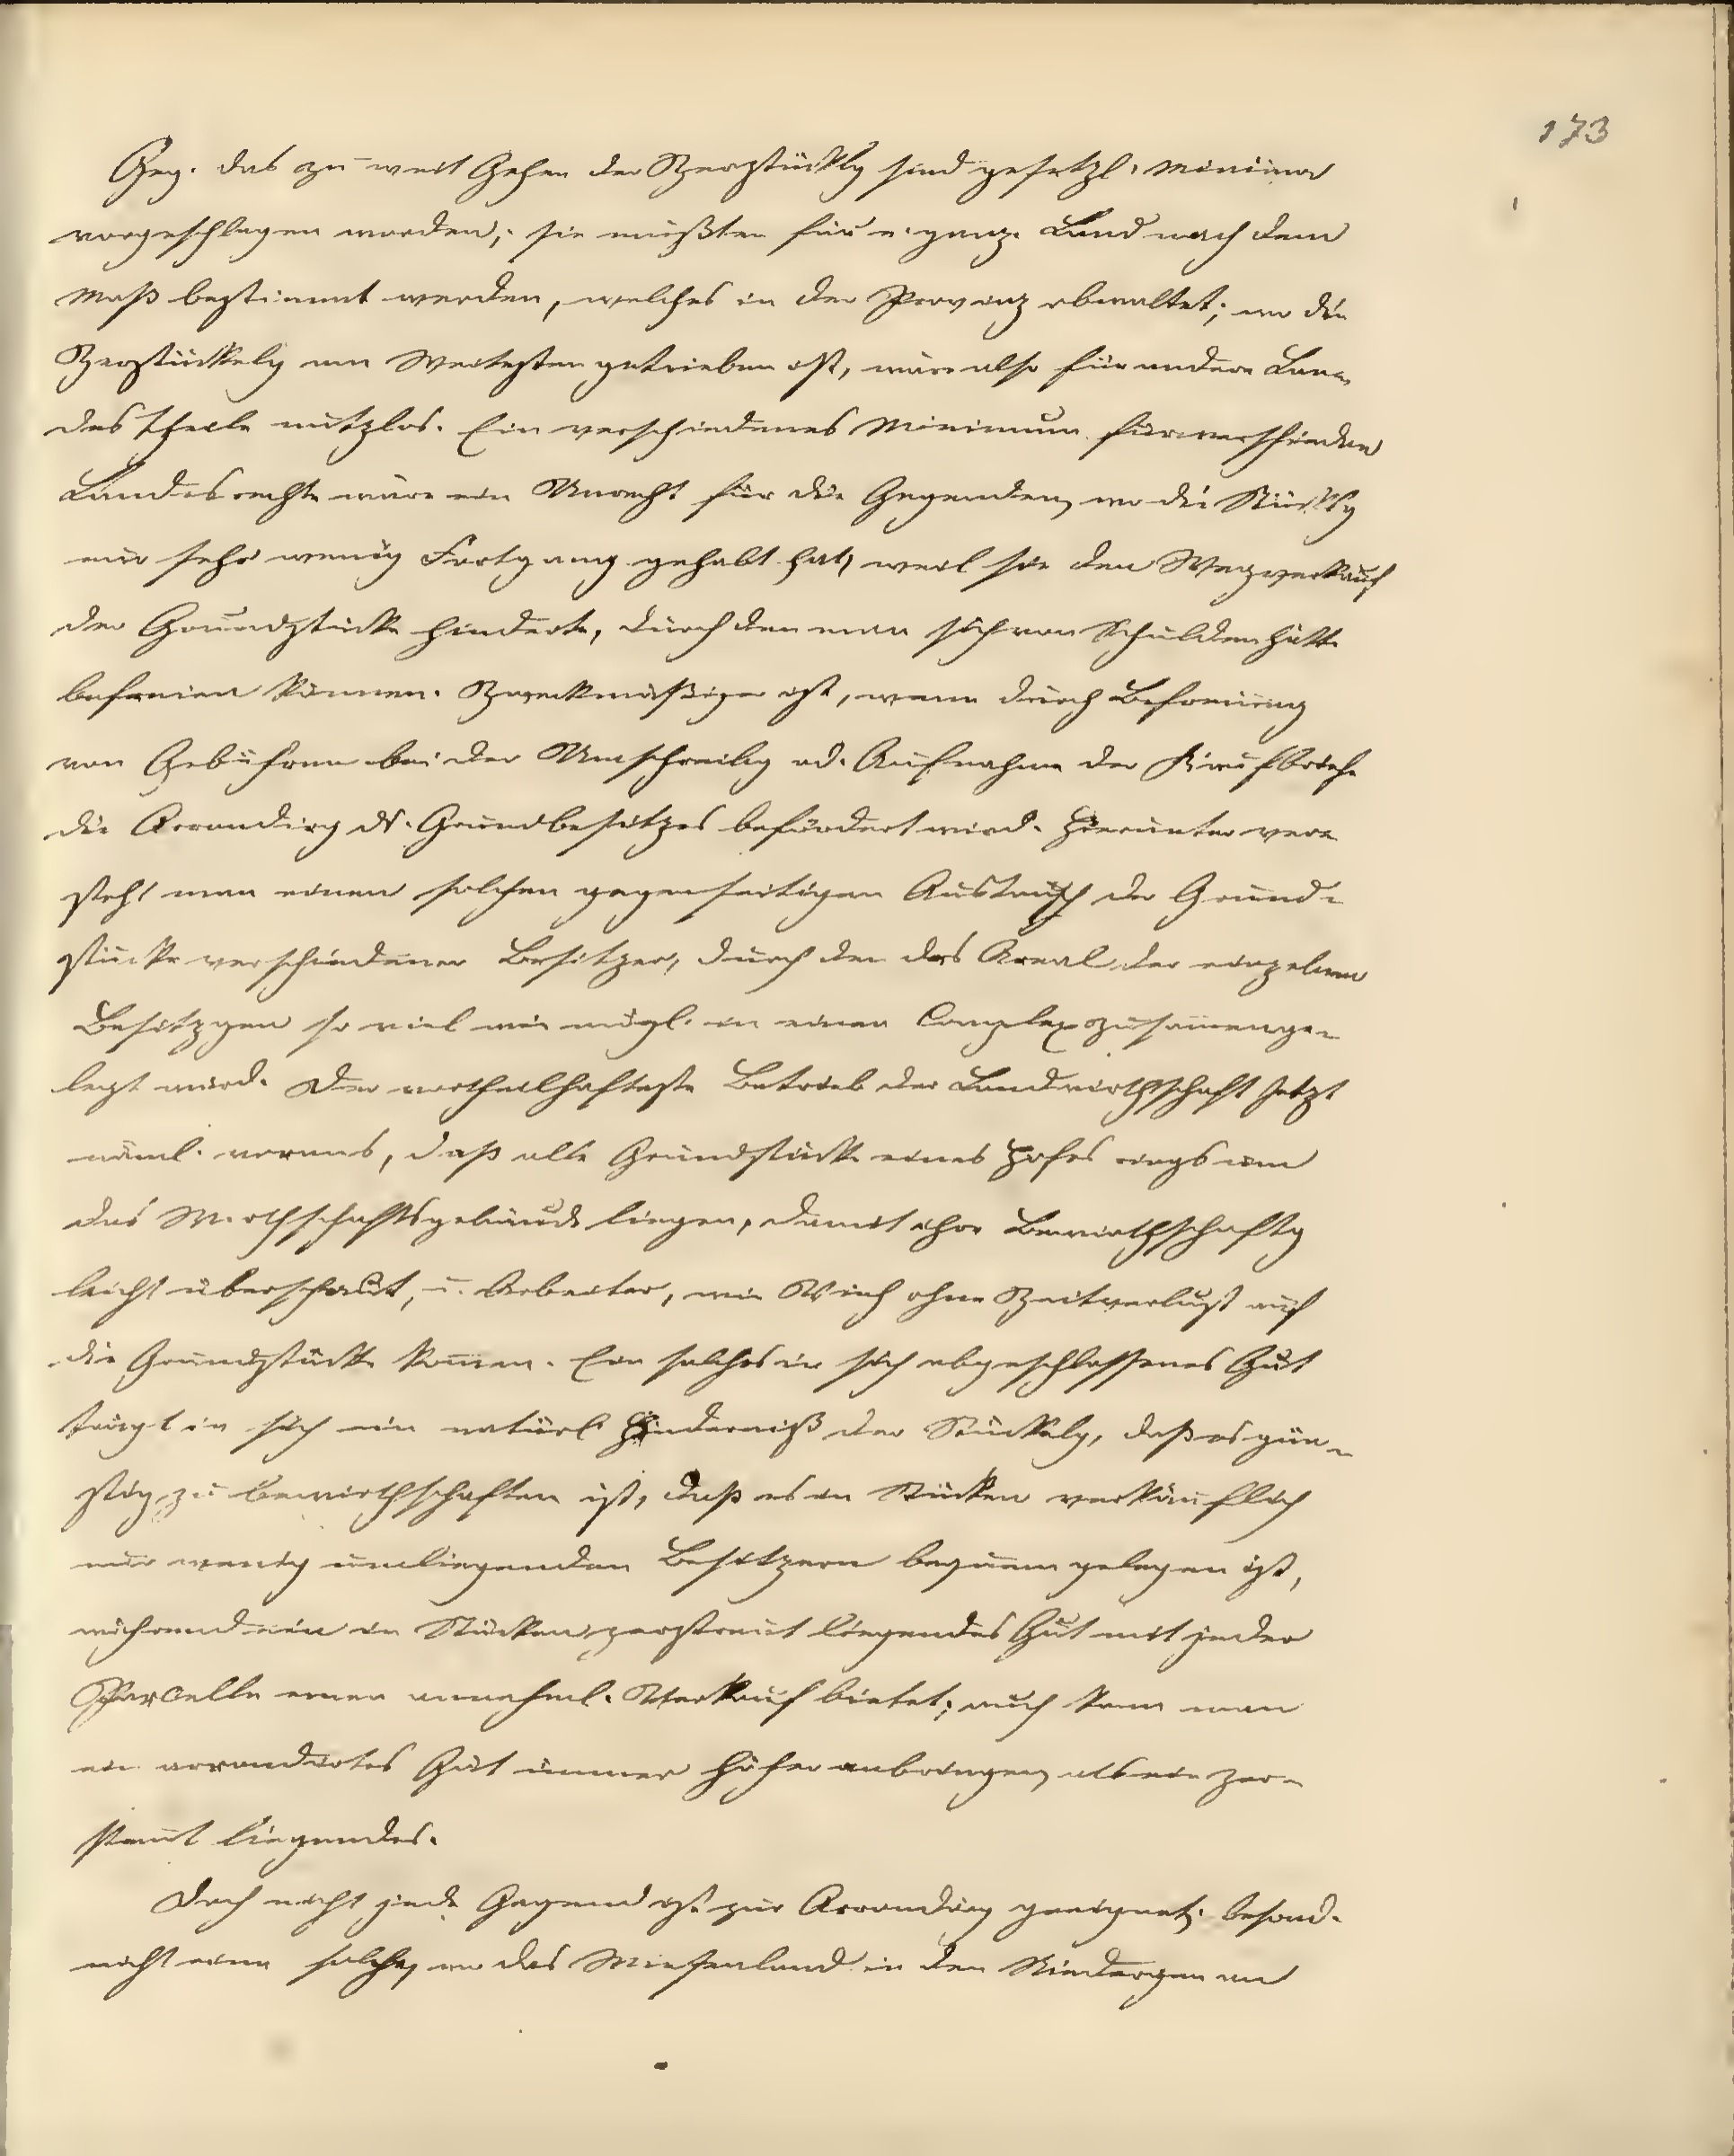 173
Geg. das zu weit Gehen der Zerstücklg sind gesetzl. Minima
vorgeschlagen worden; sie müßten für e. ganz. Land nach dem
Maß bestimmt werden, welches in der Provinz obwaltet, wo die
Zerstückelg am Weitesten getrieben ist, wäre also für andere Lan-
destheile nutzlos. Ein verschiedenes Minimum für verschieden
Landesrechte wäre ein Unrecht für die Gegenden, wo die Stücklg
nur sehr wenig Fortgang gehabt hat, weil sie den Wegverkauf
der Grundstücke hinderte, durch den man sich von Schulden hätte
befreien können. Zweckmäßiger ist, wenn durch Befreiung
von Gebühren bei der Umschreibg od. Aufnahme der Kaufbriefe
die Arrondirg ds. Grundbesitzes befördert wird. Hierunter ver-
steht man einen solchen gegenseitigen Austausch der Grund-
stücke verschiedener Besitzer, durch den das Areal der einzelnen
Besitzgen so viel wie mögl. in einen Complex zusammenge-
legt wird. Der vortheilhafteste Betrieb der Landwirthschaft setzt
näml. voraus, daß alle Grundstücke eines Hofes rings um
das Wirthschaftsgebäude liegen, damit ihre Bewirthschaftg
leicht überschaut, u. Arbeiter, wie Vieh ohne Zeitverlust auf
die Grundstücke kommen. Ein solches in sich abgeschlossenes Gut
trägt in sich ein natürl. Hinderniß der Stückelg, daß es gün-
stig zu bewirthschaften ist, daß es in Stücken verkäuflich
nur wenig umliegenden Besitzern bequem gelegen ist,
während ein in Stücken zerstreut liegendes Gut mit jeder
Parcelle einen annehml. Verkauf bietet; auch kann man
ein arrondirtes Gut immer höher anbringen, als ein zer-
streut liegendes.
Doch nicht jede Gegend ist zur Arrondirg geeignet, besond.
nicht eine solche, wo das Wiesenland in den Niedergen an